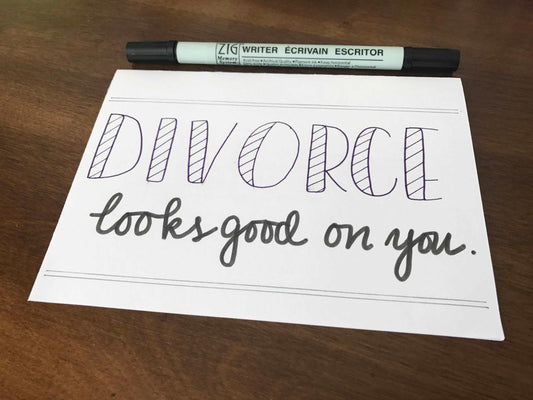 ZIG WRITER ÉCRIVAIN ESCRITOR
Memory System
DIVORCE
looks good on you.